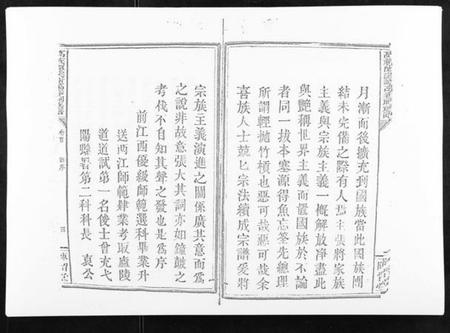 月漸而後擴充到國族當此國族團
結未完備之際有人焉主張將家族
主義與宗族主義一概解放淨盡此
與艷稱世界主義而置國族於不論
者同一拔本塞源得魚忘筌先總理
所謂輕拋竹槓也惡可哉惡可哉余
喜族人士兢兢宗法續成宗譜爰將
宗族主義演進之關係廣其意而為
之說非故意張大其詞亦如鐘鼓之
考伐不自知其聲之發也是為序
前江西優級師範選科畢業升
送兩江師範肄業考取廬陵
道道試第一名俊士曾充弋
陽縣署第二科科長 袁公